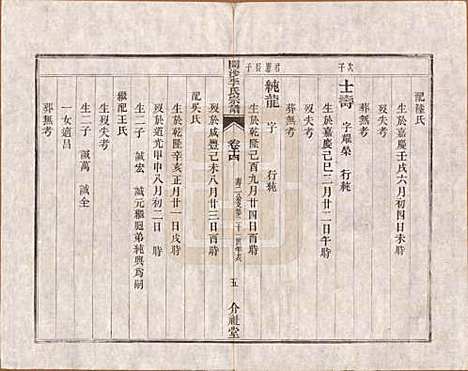 配陸氏
生於嘉慶壬戌六月初四日未時
歿失考
葬無考
次子
士壽 字耀榮 行純
生於嘉慶己巳三月廿二日子時
歿失考
葬無考
純龍 字 行純
生於乾隆己酉九月廿四日酉時
歿於咸豐己未八月廿三日酉時
卷十四
五 介祉堂
配吳氏
生於乾隆辛亥正月廿一日戌時
歿於道光甲申八月初二日 時
生二子 誠宏 誠元繼胞弟純興為嗣
繼配王氏
生歿失考
生二子 誠萬 誠全
一女適昌
葬無考